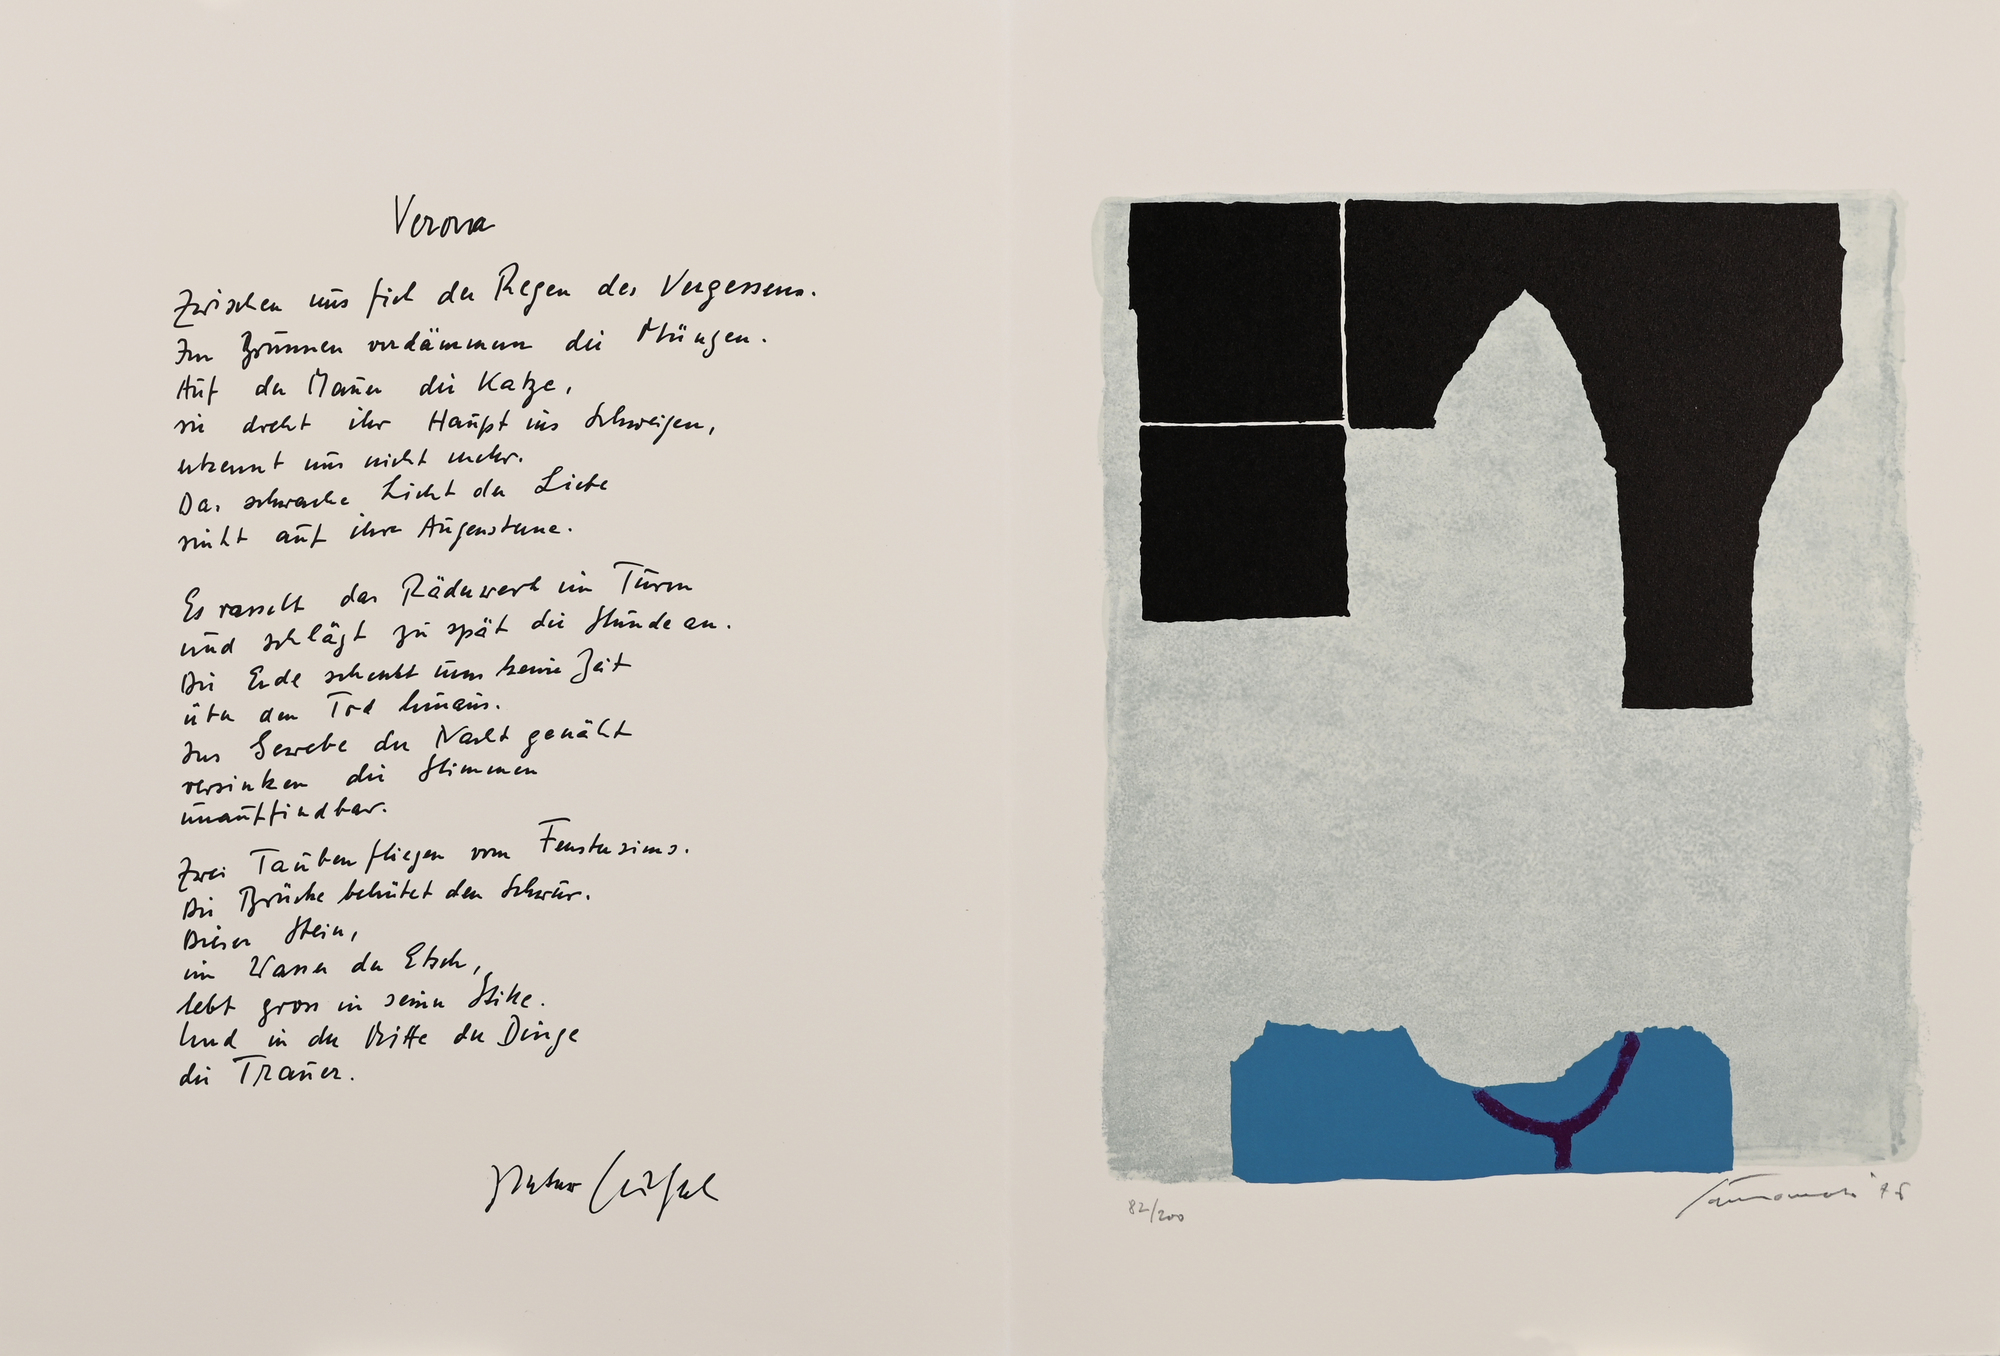 Verona
Zwischen uns fiel der Regen des Vergessens.
Im Brunnen verdämmern die Münzen.
Auf der Mauer die Katze,
sie dreht ihr Haupt ins Schweigen,
erkennt uns nicht mehr.
Das schwache Licht der Liebe
sinkt auf ihre Augensterne.
Es rasselt das Räderwerk im Turm
und schlägt zu spät die Stunde an.
Die Erde schenkt uns keine Zeit
über den Tod hinaus.
Ins Gewebe der Nacht genäht
versinken die Stimmen
unauffindbar.
Zwei Tauben fliegen vom Fenstersims.
Die Brücke behütet den Schwur.
Dieser Stein,
im Wasser der Etsch,
lebt gross in seiner Stille.
Und in der Mitte der Dinge
die Trauer.
82/200